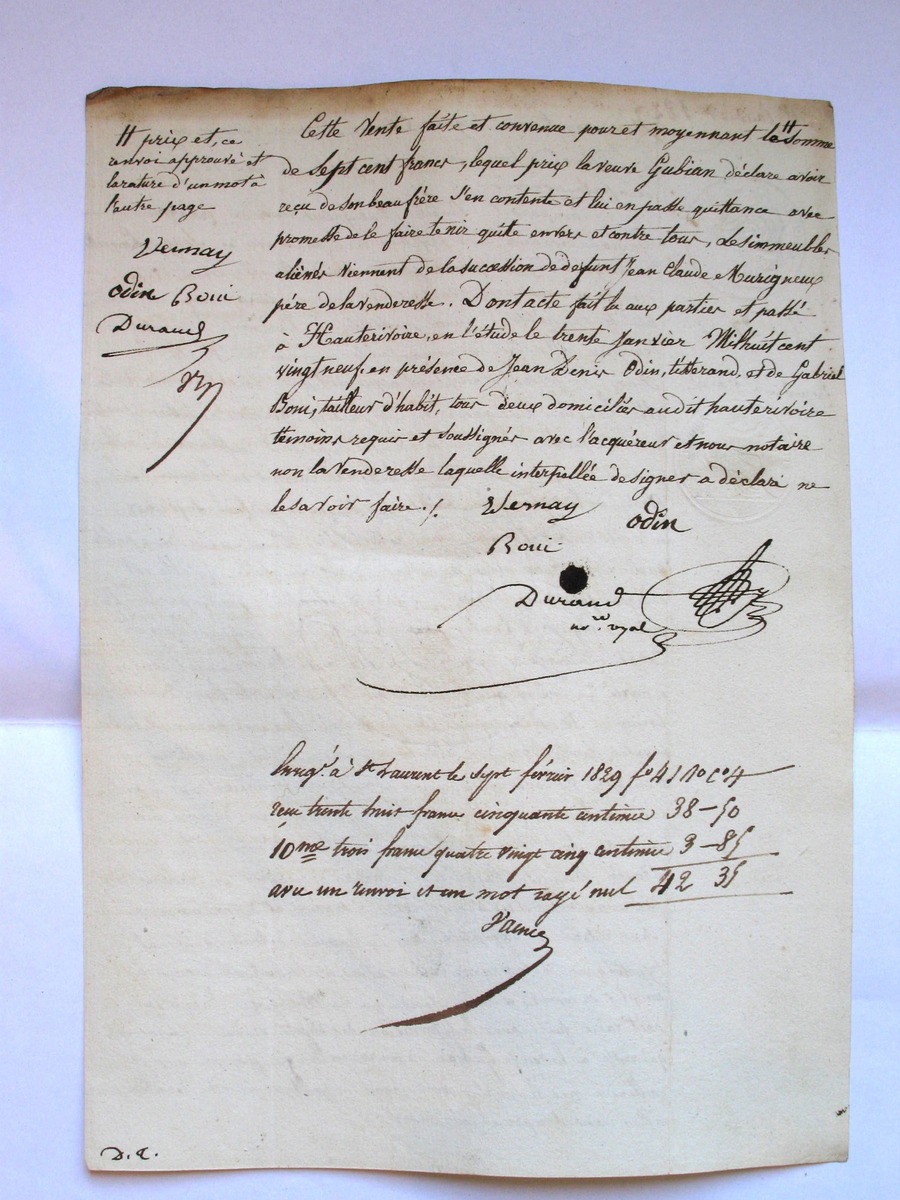 # prix et, ce
renvoi approuvé et
la rature d'un mot à
l'autre page
Vernay
Odin Boni
Durand
Cette Vente faite et convenue pour et moyennant le # Somme
de Sept cent francs, lequel prix la veuve Gubian déclare avoir
reçu de son beau frère s'en contente et lui en passe quittance avec
promesse de le faire tenir quite envers et contre tous, Les immeubles
aliénés viennent de la succession de defunt Jean Claude Murigneux
père de la venderesse. Dont acte fait lu aux parties et passé
à Hauterivoire, en l'étude le trente Janvier Mil huit cent
vingt neuf, en présence de Jean Denis Odin, titterand, et de Gabriel
Boni, tailleur d'habit, tous deux domiciliés audit hauterivoire
temoins requis et soussignés avec l'acquéreur et nous notaire
non la venderesse laquelle interpellée de signer a déclaré ne
le savoir faire ./.
Vernay
Odin
Boni
Durand
nre. royal
Enreg.t à St Laurent le sept février 1829 fo 41 Ro Co 4
reçu trente huit francs cinquante centimes 38-50
10me trois francs quatre vingt cinq centimes 3-85
avec un renvoi et un mot rayé nul 42 35
D.C.